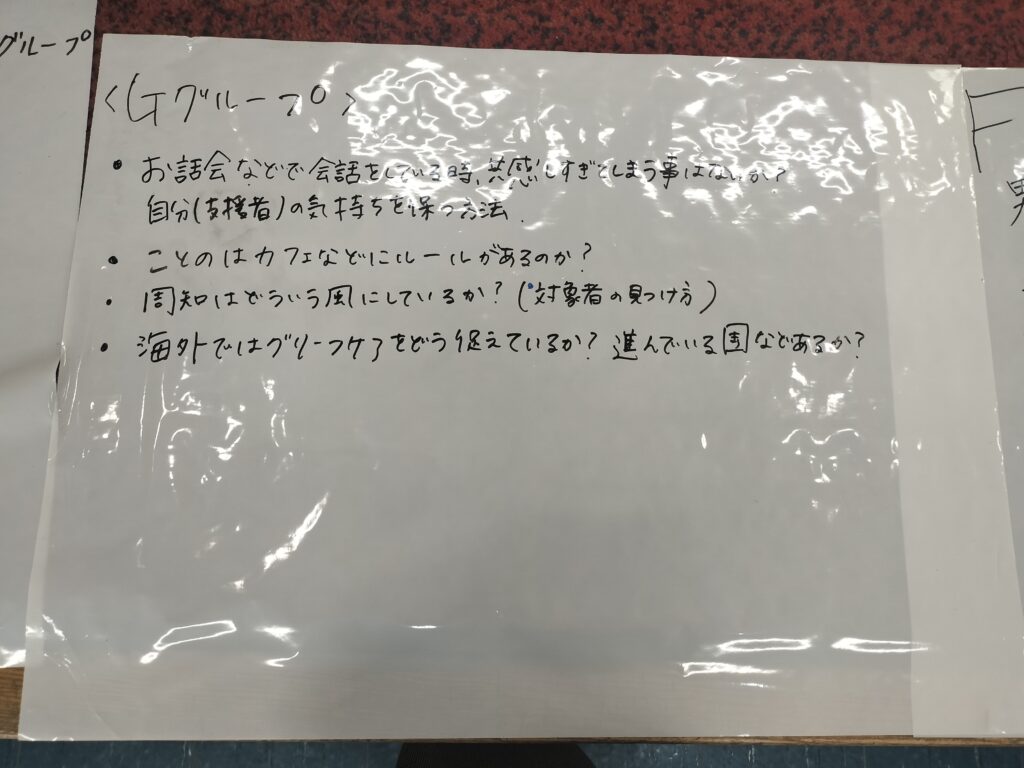 グループ
<Gグループ>
• お話会などで会話をしている時、共感しすぎてしまう事はないか?
自分(支援者)の気持ちを保つ方法.
• ことのはカフェなどにルールがあるのか?
• 周知はどういう風にしているか? (対象者の見つけ方)
• 海外ではグリーフケアをどう捉えているか? 進んでいる国などあるか?